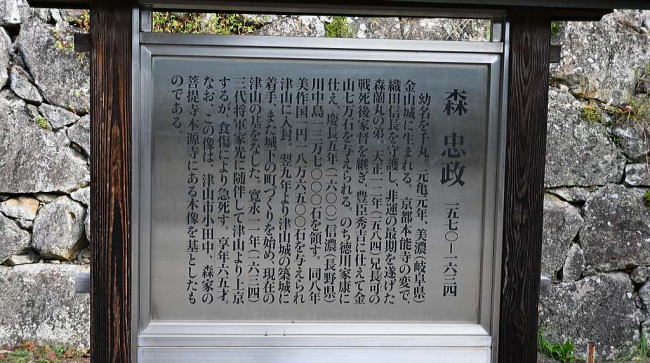 森 忠政 一五七〇―一六三四
幼名を千丸。元亀元年、美濃（岐阜県）
金山城に生まれる。京都本能寺の変で、
織田信長を守護し、非運の最期を遂げた
森蘭丸の弟。天正一二年（一五八四）兄長可の
戦死後家督を継ぎ、豊臣秀吉に仕えて金
山七万石を与えられる。のち徳川家康に
仕え、慶長五年（一六〇〇）信濃（長野県）
川中島一三万七〇〇〇石を領す。同八年
美作国一円一八万六五〇〇石を与えられ
津山に入封、翌九年より津山城の築城に
着手、また城下の町づくりを始め、現在の
津山の基をなした。寛永一一年（一六三四）
三代将軍家光に随伴して津山より上京
するが、食傷により急死す。享年六五才。
なお、この像は、津山市小田中、森家の
菩提寺本源寺にある木像を基としたも
のである。